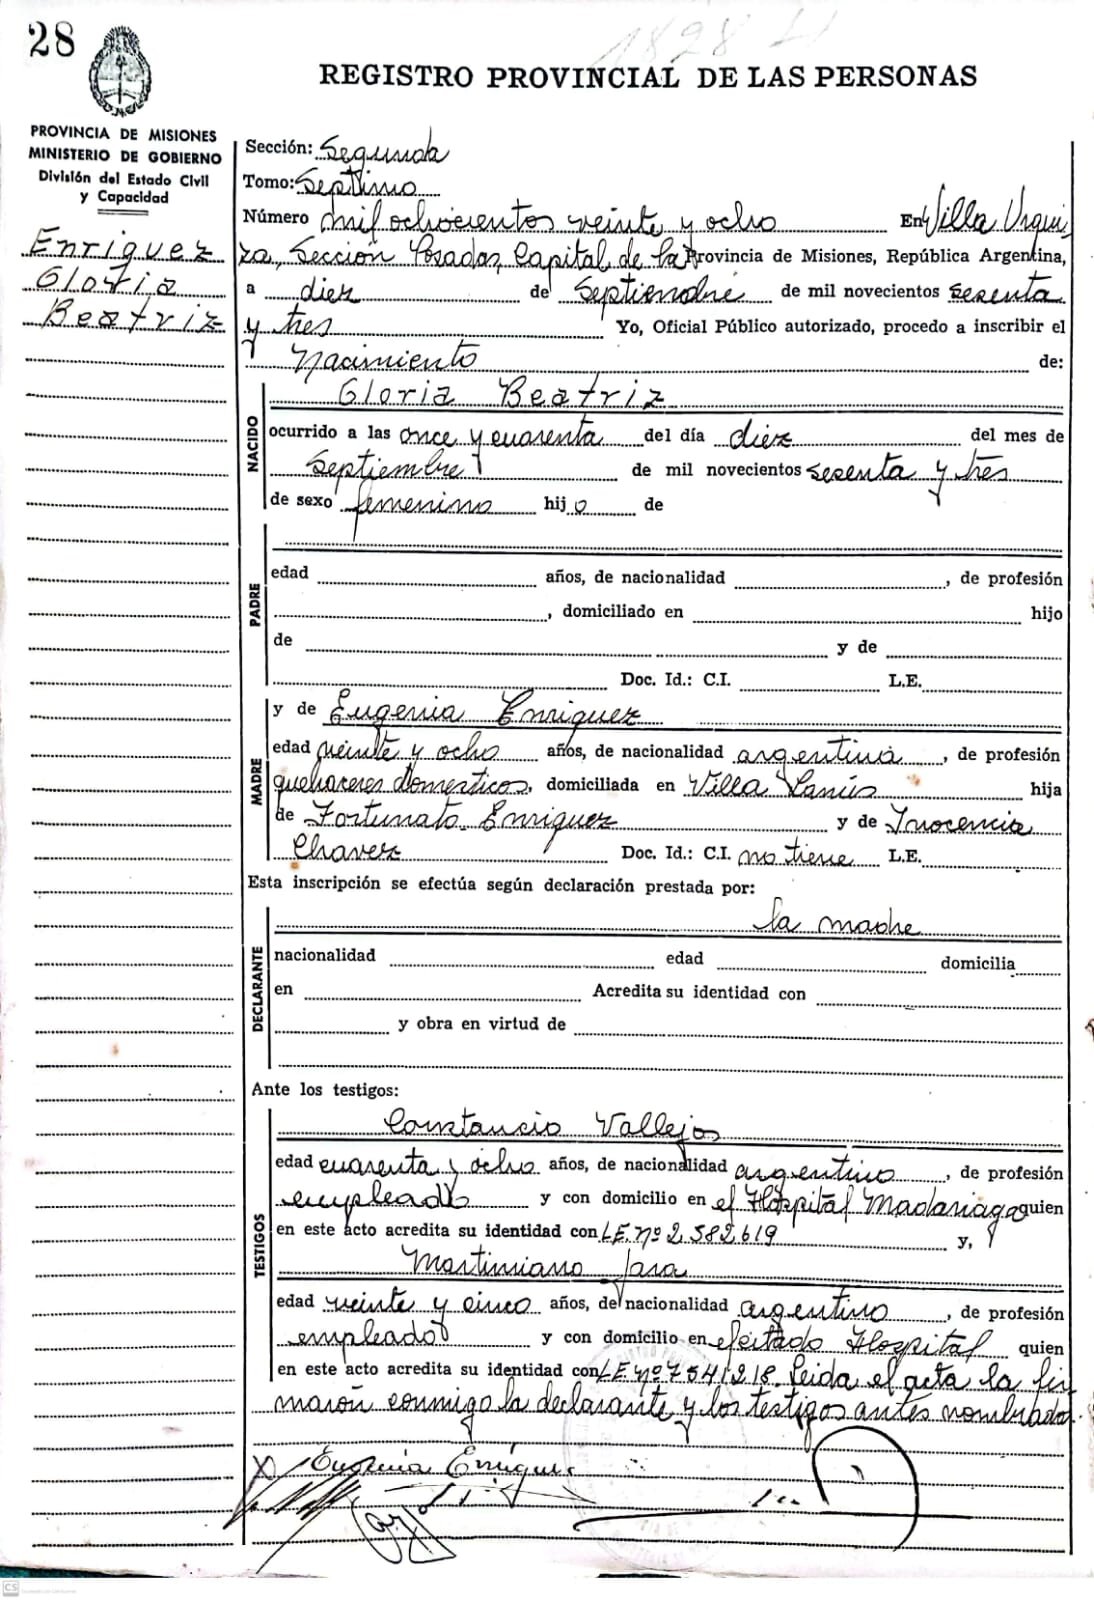 28
1828
REGISTRO PROVINCIAL DE LAS PERSONAS
PROVINCIA DE MISIONES
MINISTERIO DE GOBIERNO
División del Estado Civil
y Capacidad
Enriquez
Gloria
Beatriz
Sección: Segunda
Tomo: Septimo
Número mil ochocientos veinte y ocho En Villa Urqui
za, Sección Posadas, Capital de la Provincia de Misiones, República Argentina,
a diez de Septiembre de mil novecientos sesenta
y tres Yo, Oficial Público autorizado, procedo a inscribir el
Nacimiento de:
NACIDO
Gloria Beatriz
ocurrido a las once y cuarenta del día diez del mes de
Septiembre de mil novecientos sesenta y tres
de sexo femenino hijo de
PADRE
edad años, de nacionalidad , de profesión
, domiciliado en hijo
de y de
Doc. Id.: C.I. L.E.
MADRE
y de Eugenia Enriquez
edad veinte y ocho años, de nacionalidad argentina , de profesión
quehaceres domesticos, domiciliada en Villa Lanús hija
de Fortunato Enriquez y de Inocencia
Chavez Doc. Id.: C.I. no tiene L.E.
Esta inscripción se efectúa según declaración prestada por:
DECLARANTE
la madre
nacionalidad edad domicilia
en Acredita su identidad con
y obra en virtud de
Ante los testigos:
TESTIGOS
Constancio Vallejos
edad cuarenta y ocho años, de nacionalidad argentino , de profesión
empleado y con domicilio en el Hospital Madariaga quien
en este acto acredita su identidad con L.E. nº 2.582.619 y,
Martiniano Jara
edad veinte y cinco años, de nacionalidad argentino , de profesión
empleado y con domicilio en el citado Hospital quien
en este acto acredita su identidad con L.E. nº 7.541.218. Leida el acta la fir
maron conmigo la declarante y los testigos antes nombrados.
X Eugenia Enriquez
CS